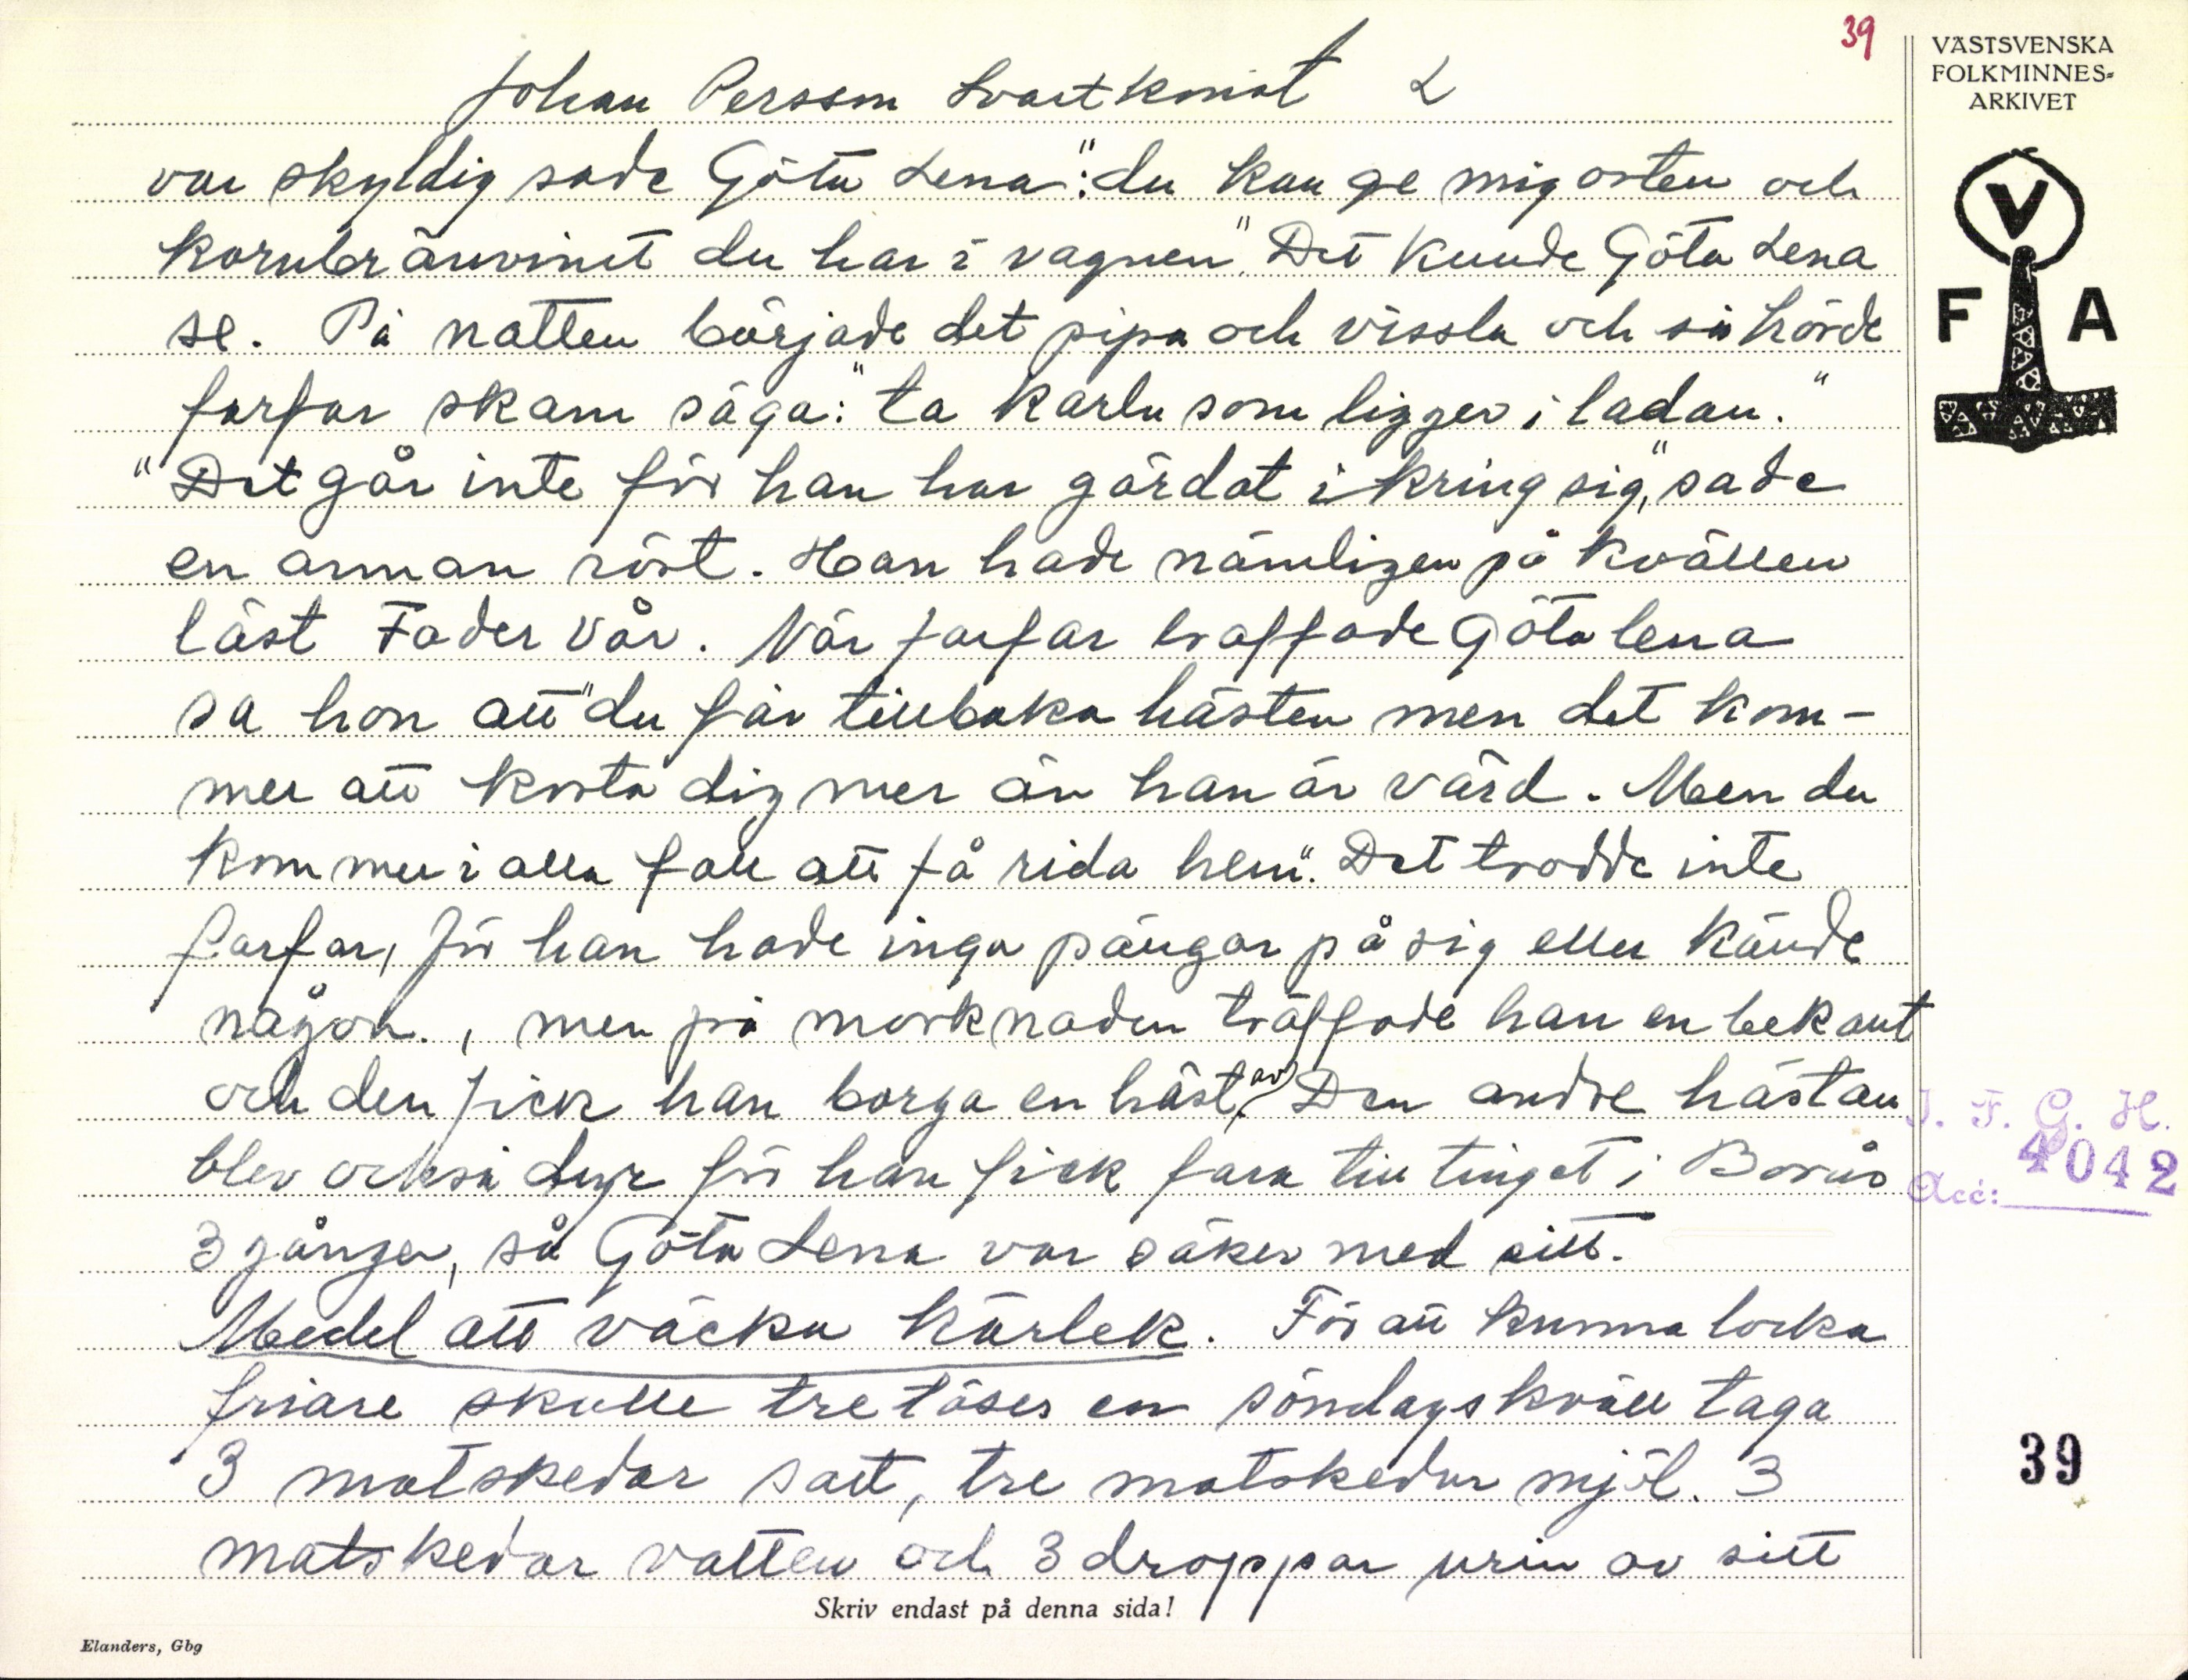 39
VÄSTSVENSKA
FOLKMINNES-
ARKIVET
V
F A
Johan Persson Svartkonst L
var skyldig sade Göta Lena: "du kan ge mig osten och
kornbränvinet du har i vagnen". Det kunde Göta Lena
se. På natten började det pipa och vissla och så hörde
farfar skam säga: "ta karln som ligger i ladan."
"Det går inte för han har gärdat ikring sig", sade
en annan röst. Han hade nämligen på kvällen
läst Fader Vår. När farfar träffade Göta lena
sa hon att "du får tillbaka hästen men det kom-
mer att kosta dig mer än han är värd. Men du
kommer i alla fall att få rida hem". Det trodde inte
farfar, för han hade inga pängar på sig eller kände
någon., men på marknaden träffade han en bekant
och den fick han borga en häst av. Den andre hästen
blev också dyr för han fick fara till tinget i Borås
3 gånger, så Göta Lena var säker med sitt.
Medel att väcka kärlek. För att kunna locka
friare skulle tre töser en söndagskväll taga
3 matskedar salt, tre matskedar mjöl. 3
matskedar vatten och 3 droppar urin av sitt
I. F. G. H.
Acc: 4042
39
Skriv endast på denna sida!
Elanders, Gbg